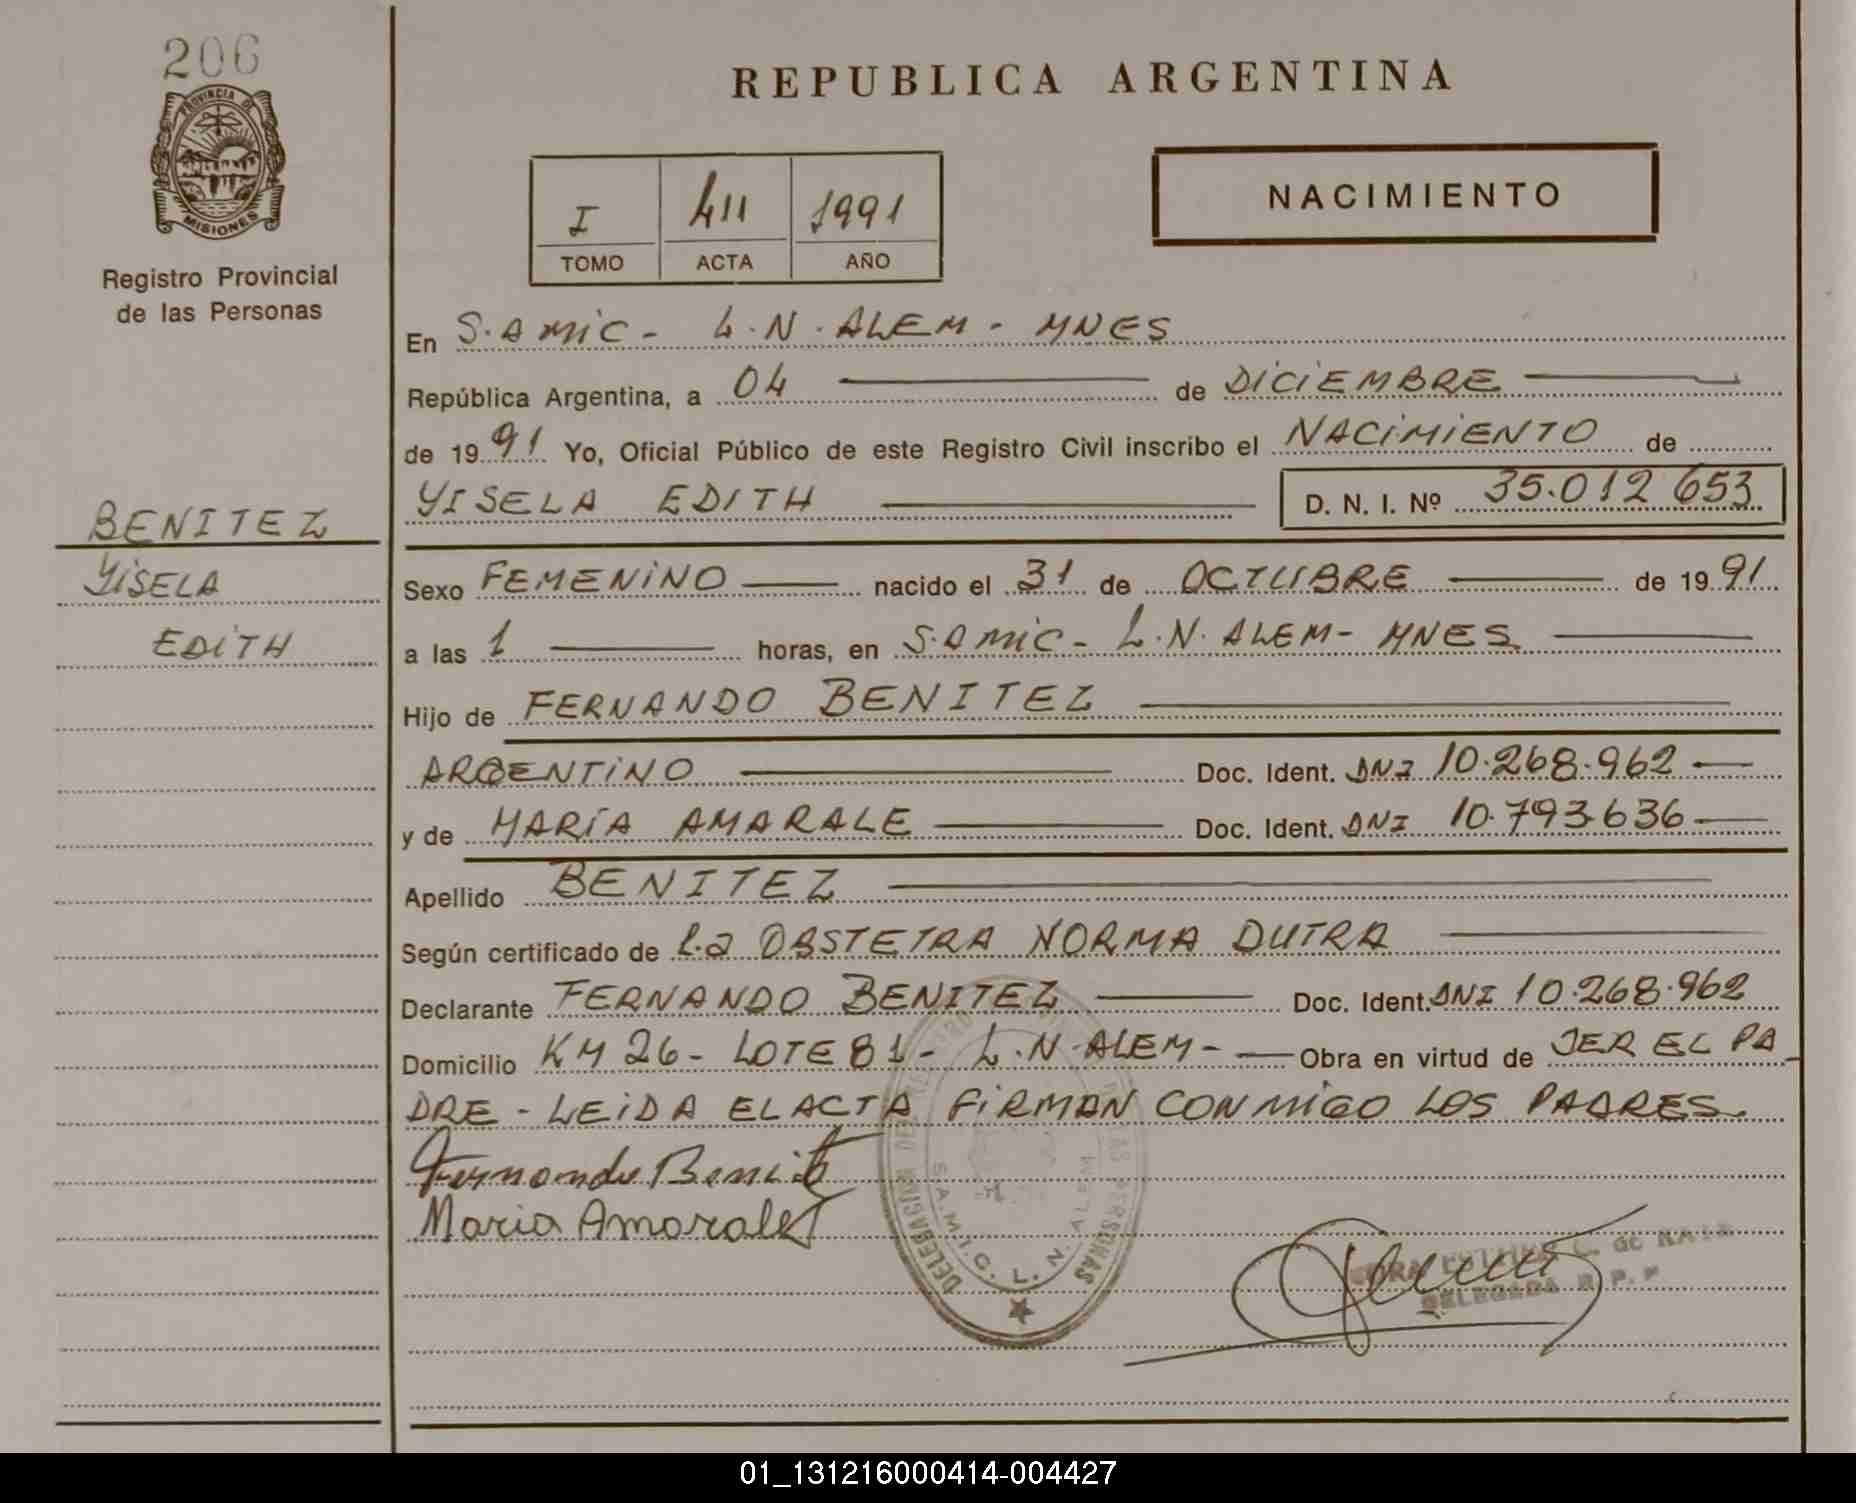 206
PROVINCIA DE
MISIONES
Registro Provincial
de las Personas
REPUBLICA ARGENTINA
I 411 1991
TOMO ACTA AÑO
NACIMIENTO
En S.AMIC - L.N.ALEM - MNES
República Argentina, a 04 de DICIEMBRE
de 1991 Yo, Oficial Público de este Registro Civil inscribo el NACIMIENTO de
YISELA EDITH D. N. I. Nº 35.012 653
BENITEZ
YISELA
EDITH
Sexo FEMENINO nacido el 31 de OCTUBRE de 1991
a las 1 horas, en S.AMIC - L.N. ALEM - MNES
Hijo de FERNANDO BENITEZ
ARGENTINO Doc. Ident. DNI 10.268.962
y de MARÍA AMARALE Doc. Ident. DNI 10.793.636
Apellido BENITEZ
Según certificado de La OBSTETRA NORMA DUTRA
Declarante FERNANDO BENITEZ Doc. Ident. DNI 10.268.962
Domicilio KM 26 - LOTE 81 - L.N.ALEM - Obra en virtud de SER EL PA-
DRE - LEIDA EL ACTA FIRMAN CONMIGO LOS PADRES.
Fernando Benitez
Maria Amorale
DELEGACION DEL REGISTRO PERSONAS
S.A.M.I.C. L. N. ALEM
L. de
DELEGADA R.P.P
01_131216000414-004427